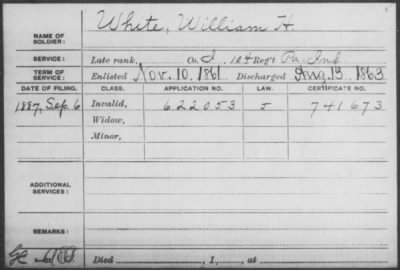 White, William H.
NAME OF
SOLDIER:
SERVICE: Late rank, Co. I, 104 Reg't Pa. Inf
TERM OF
SERVICE: Enlisted Nov. 10, 1861 Discharged Aug. 13, 1863
DATE OF FILING. CLASS. APPLICATION NO. LAW. CERTIFICATE NO.
1887, Sep 6 Invalid, 622053 J 741673
Widow,
Minor,
ADDITIONAL
SERVICES:
REMARKS:
Died , 1 , at